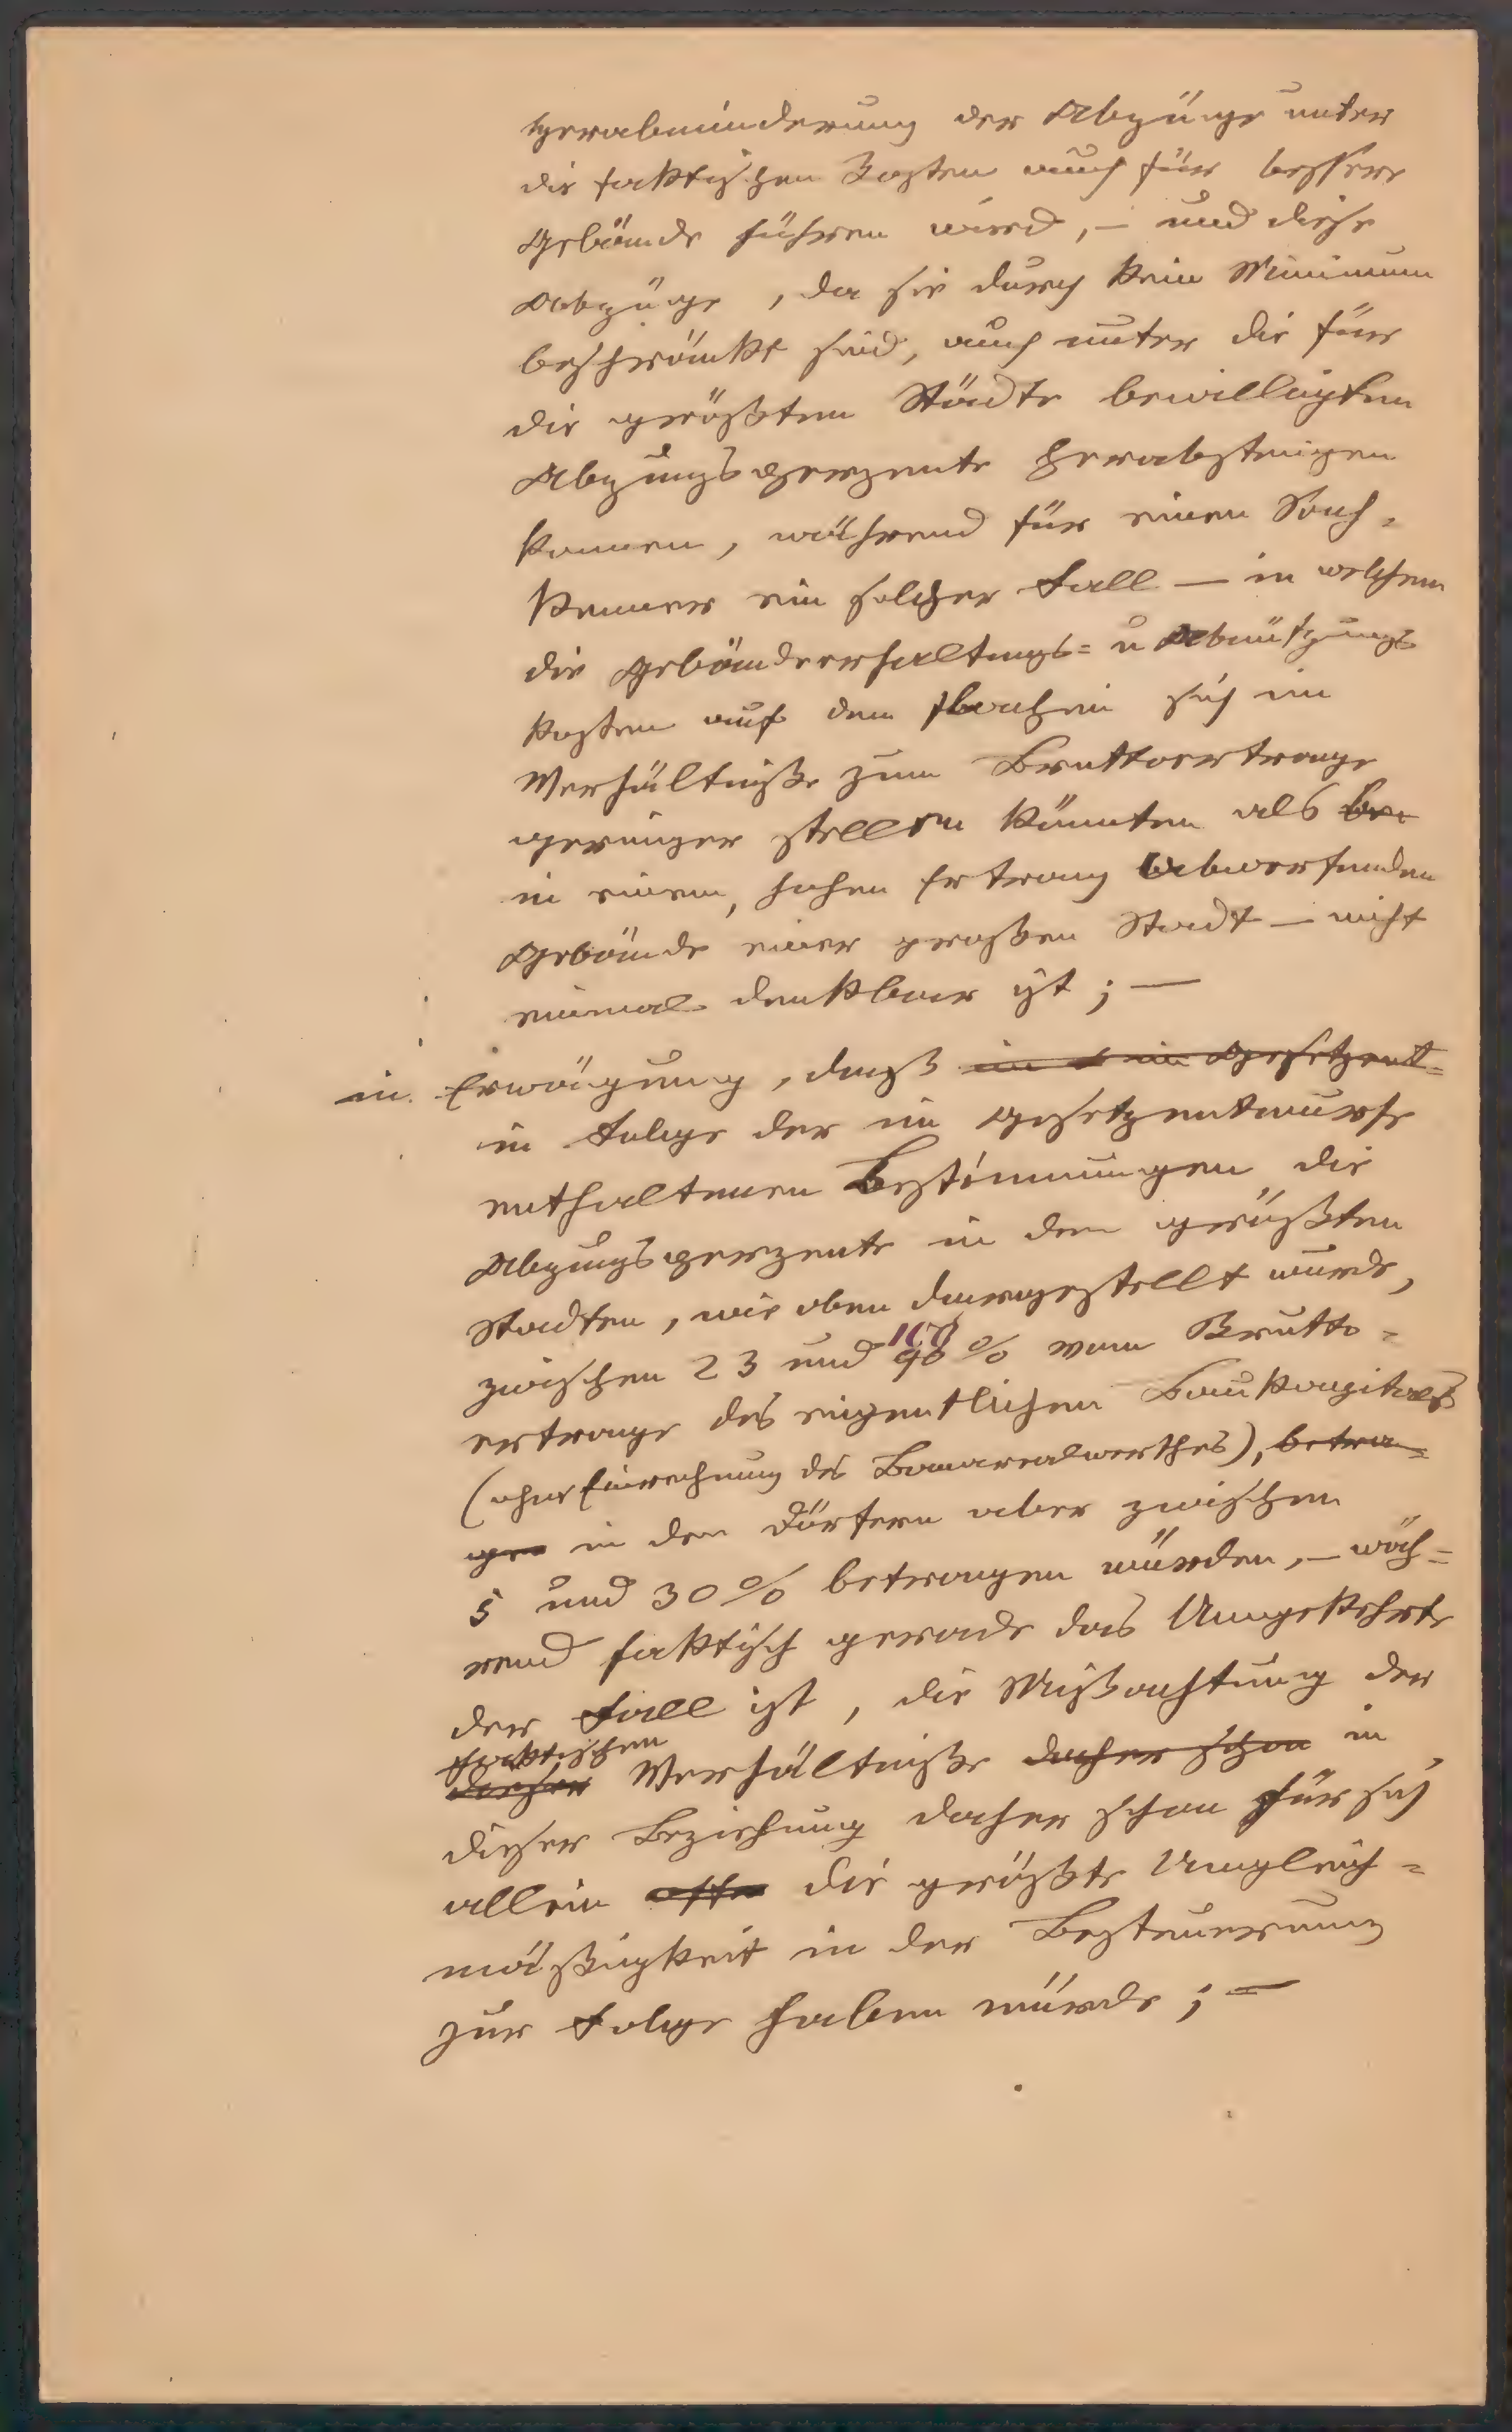 Herabminderung der Abzüge unter
die faktischen Kosten auch für bessere
Gebäude führen wird, – und diese
Abzüge, da sie durch kein Minimum
beschränkt sind, auch unter die für
die größten Städte bewilligten
Abzugsperzente herabsteigen
können, während für einen Sach-
kenner ein solcher Fall – in welchem
die Gebäudeerhaltungs= u Abnützungs
kosten auf dem flachen sich im
Verhältniße zum Bruttoertrage
geringer stellen könnten als bei
in einem, hohen Ertrag abwerfenden
Gebäude einer großen Stadt – nicht
einmal denkbar ist; –
in Erwägung, daß im Gesetzent=
in Folge der im Gesetzentwurfe
enthaltenen Bestimmungen die
Abzugsperzente in den größten
Stadten, wie oben dargestellt wurde,
zwischen 23 und 90% vom Brutto=
ertrage des eigentlichen Baukapitals
(ohne Einrechnung des Bauarealwerthes), betra=
gen in den Dörfern aber zwischen
5 und 30% betragen würden, – wäh=
rend faktisch gerade das Umgekehrte
der Fall ist, die Mißachtung der
faktischen
dieser Verhältniße daher schon in
dieser Beziehung daher schon für sich
allein die größte Ungleich=
mäßigkeit in der Besteuerung
zur Folge haben würde; –